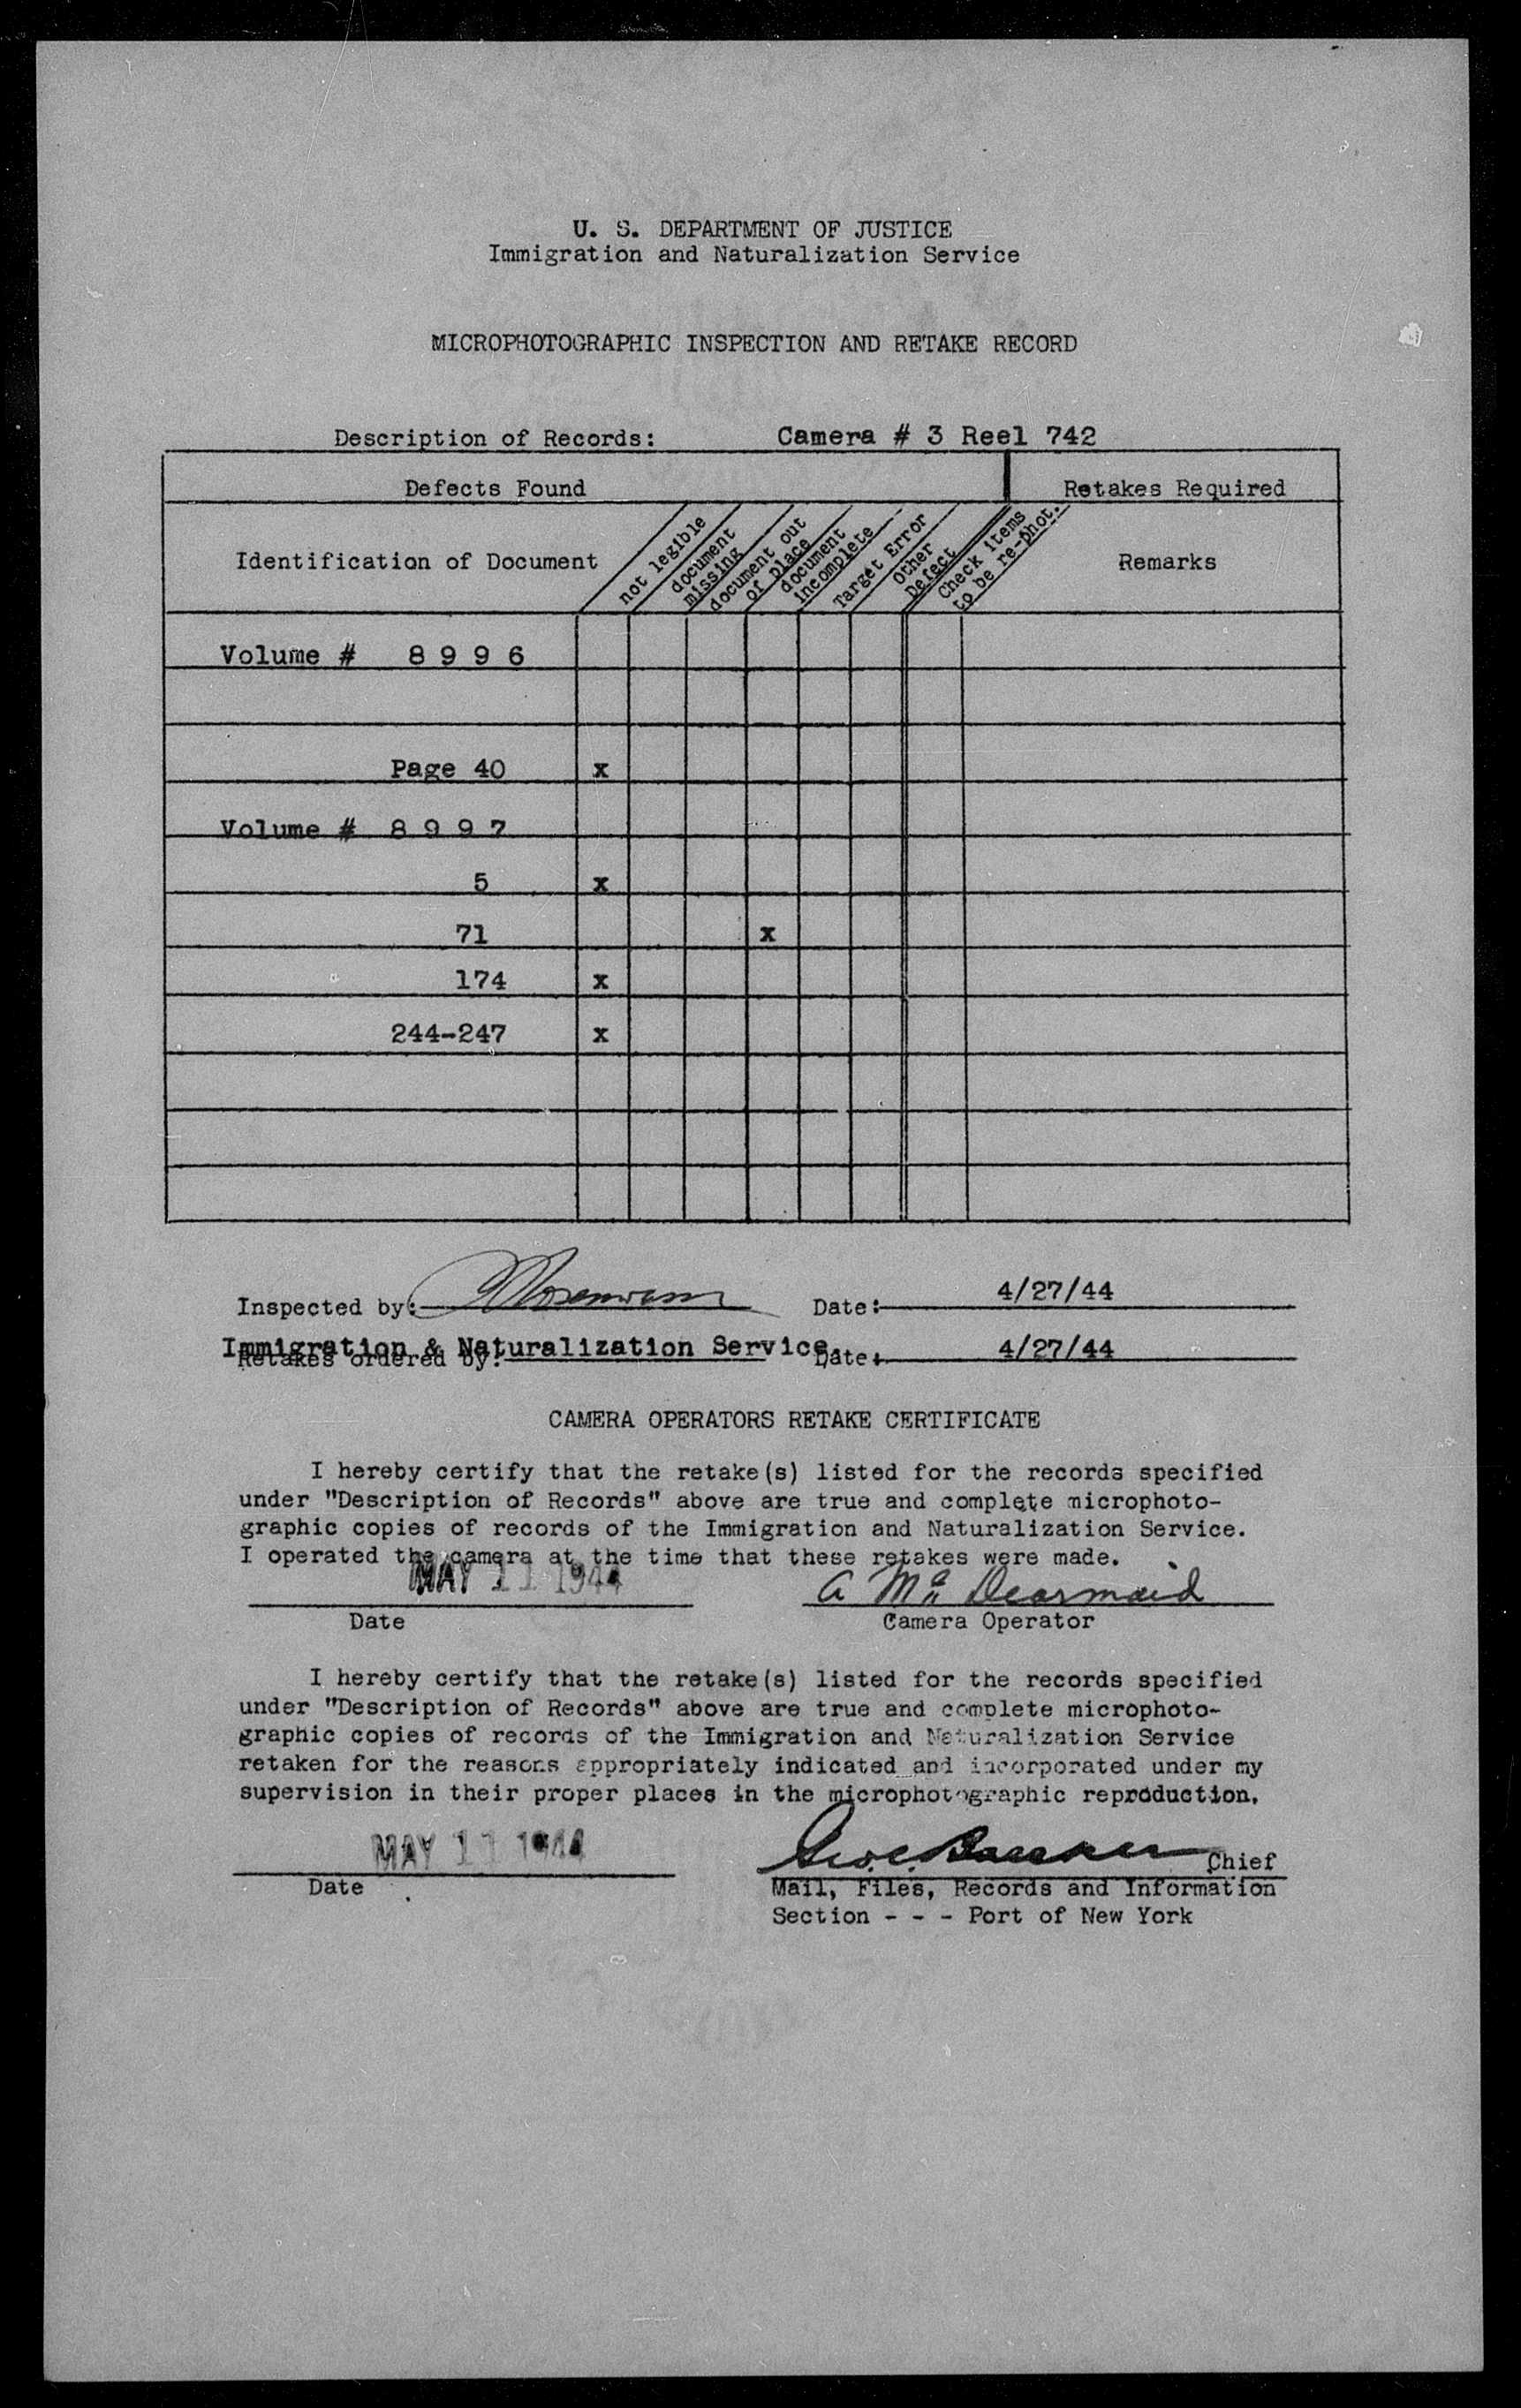 U. S. DEPARTMENT OF JUSTICE
Immigration and Naturalization Service
MICROPHOTOGRAPHIC INSPECTION AND RETAKE RECORD
Description of Records: Camera # 3 Reel 742
Defects Found Retakes Required
Identification of Document
not legible
document
missing
document out
of place
document
incomplete
Target Error
Other
Defect
Check items
to be re-phot.
Remarks
Volume # 8 9 9 6
Page 40 x
Volume # 8 9 9 7
5 x
71 x
174 x
244-247 x
Inspected by: Date: 4/27/44
Immigration & Naturalization Service
Retakes ordered by: Date: 4/27/44
CAMERA OPERATORS RETAKE CERTIFICATE
I hereby certify that the retake(s) listed for the records specified
under "Description of Records" above are true and complete microphoto-
graphic copies of records of the Immigration and Naturalization Service.
I operated the camera at the time that these retakes were made.
MAY 11 1944 A Mc Dearmaid
Date Camera Operator
I hereby certify that the retake(s) listed for the records specified
under "Description of Records" above are true and complete microphoto-
graphic copies of records of the Immigration and Naturalization Service
retaken for the reasons appropriately indicated and incorporated under my
supervision in their proper places in the microphotographic reproduction.
MAY 11 1944 Chief
Date Mail, Files, Records and Information
Section - - - Port of New York